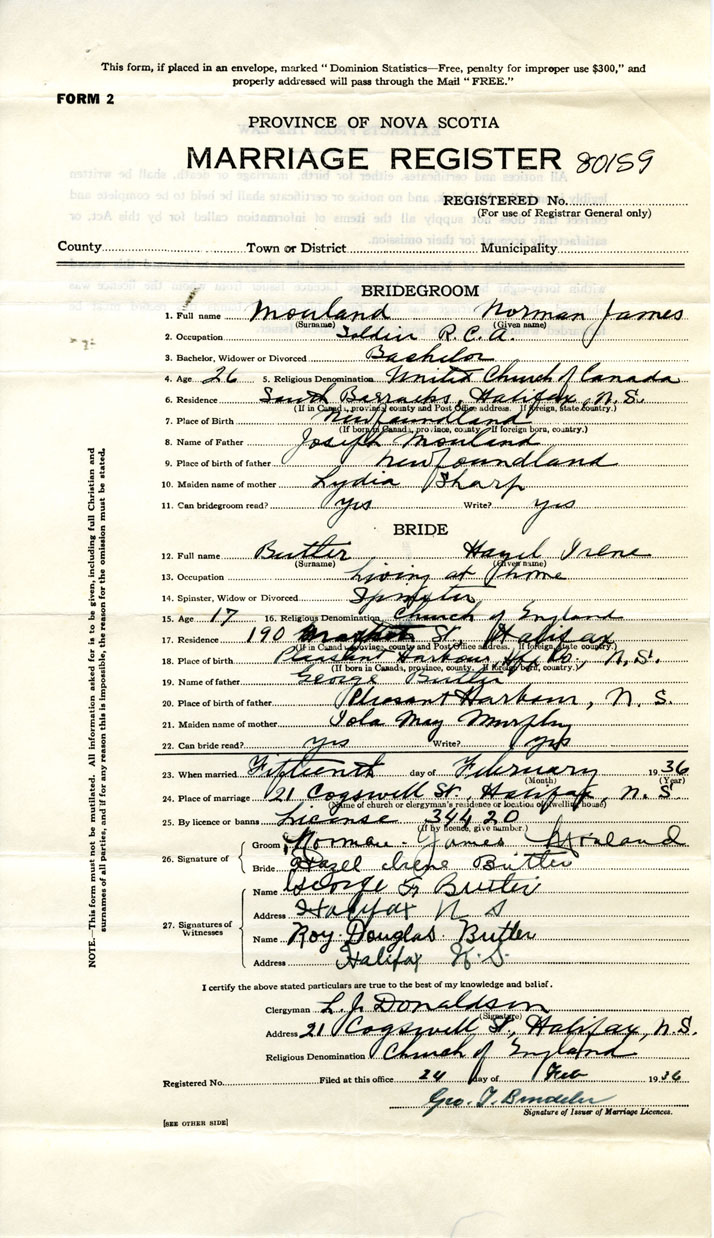 This form, if placed in an envelope, marked "Dominion Statistics—Free, penalty for improper use $300," and
properly addressed will pass through the Mail "FREE."
FORM 2
PROVINCE OF NOVA SCOTIA
MARRIAGE REGISTER 80159
REGISTERED No.
(For use of Registrar General only)
County Town or District Municipality
BRIDEGROOM
1. Full name Mouland Norman James
(Surname) (Given name)
2. Occupation Soldier R.C.A.
3. Bachelor, Widower or Divorced Bachelor
4. Age 26 5. Religious Denomination United Church of Canada
6. Residence South Barracks, Halifax, N.S.
(If in Canada, province, county and Post Office address. If foreign, state country.)
7. Place of Birth Newfoundland
(If born in Canada, province, county. If foreign born, country.)
8. Name of Father Joseph Mouland
9. Place of birth of father Newfoundland
10. Maiden name of mother Lydia Sharp
11. Can bridegroom read? yes Write? yes
BRIDE
12. Full name Butler Hazel Irene
(Surname) (Given name)
13. Occupation Living at home
14. Spinster, Widow or Divorced Spinster
15. Age 17 16. Religious Denomination Church of England
17. Residence 190 St. Halifax
(If in Canada, province, county and Post Office address. If foreign, state country.)
18. Place of birth Pleasant Harbour, Hfx Co., N.S.
(If born in Canada, province, county. If foreign born, country.)
19. Name of father George Butler
20. Place of birth of father Pleasant Harbour, N.S.
21. Maiden name of mother Iola May Murphy
22. Can bride read? yes Write? yes
23. When married Fifteenth day of February 1936
(Month) (Year)
24. Place of marriage 21 Cogswell St., Halifax, N.S.
(Name of church or clergyman's residence or location of dwelling house)
25. By licence or banns License 34420
(If by licence, give number.)
26. Signature of
Groom Norman James Mouland
Bride Hazel Irene Butler
27. Signatures of Witnesses
Name George Butler
Address Halifax N S
Name Roy Douglas Butler
Address Halifax N.S.
I certify the above stated particulars are true to the best of my knowledge and belief.
Clergyman L. J. Donaldson
(Signature)
Address 21 Cogswell St., Halifax, N.S.
Religious Denomination Church of England
Registered No. Filed at this office 24 day of Feb 1936
Geo. T.
Signature of Issuer of Marriage Licences.
[SEE OTHER SIDE]
NOTE.—This form must not be mutilated. All information asked for is to be given, including full Christian and
surnames of all parties, and if for any reason this is impossible, the reason for the omission must be stated.